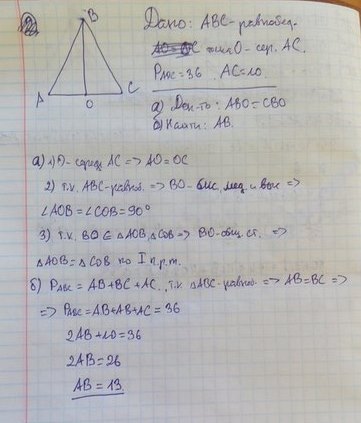 B
Дано: ABC-равнобед.
т.O-сер. AC.
P ABC=36 AC=10.
а) Док-ть: ABO=CBO
б) Найти: AB.
A
O
C
а) 1) O-серед. AC => AO=OC
2) т.к. ABC-равноб. => BO-бис, мед и выс =>
∠AOB=∠COB=90°
3) т.к. BO ∈ △AOB, △COB => BO-общ. ст. =>
△AOB=△COB по I п.р.т.
б) PABC=AB+BC+AC. т.к △ABC-равноб. => AB=BC =>
=> PABC=AB+AB+AC=36
2AB+10=36
2AB=26
AB=13.